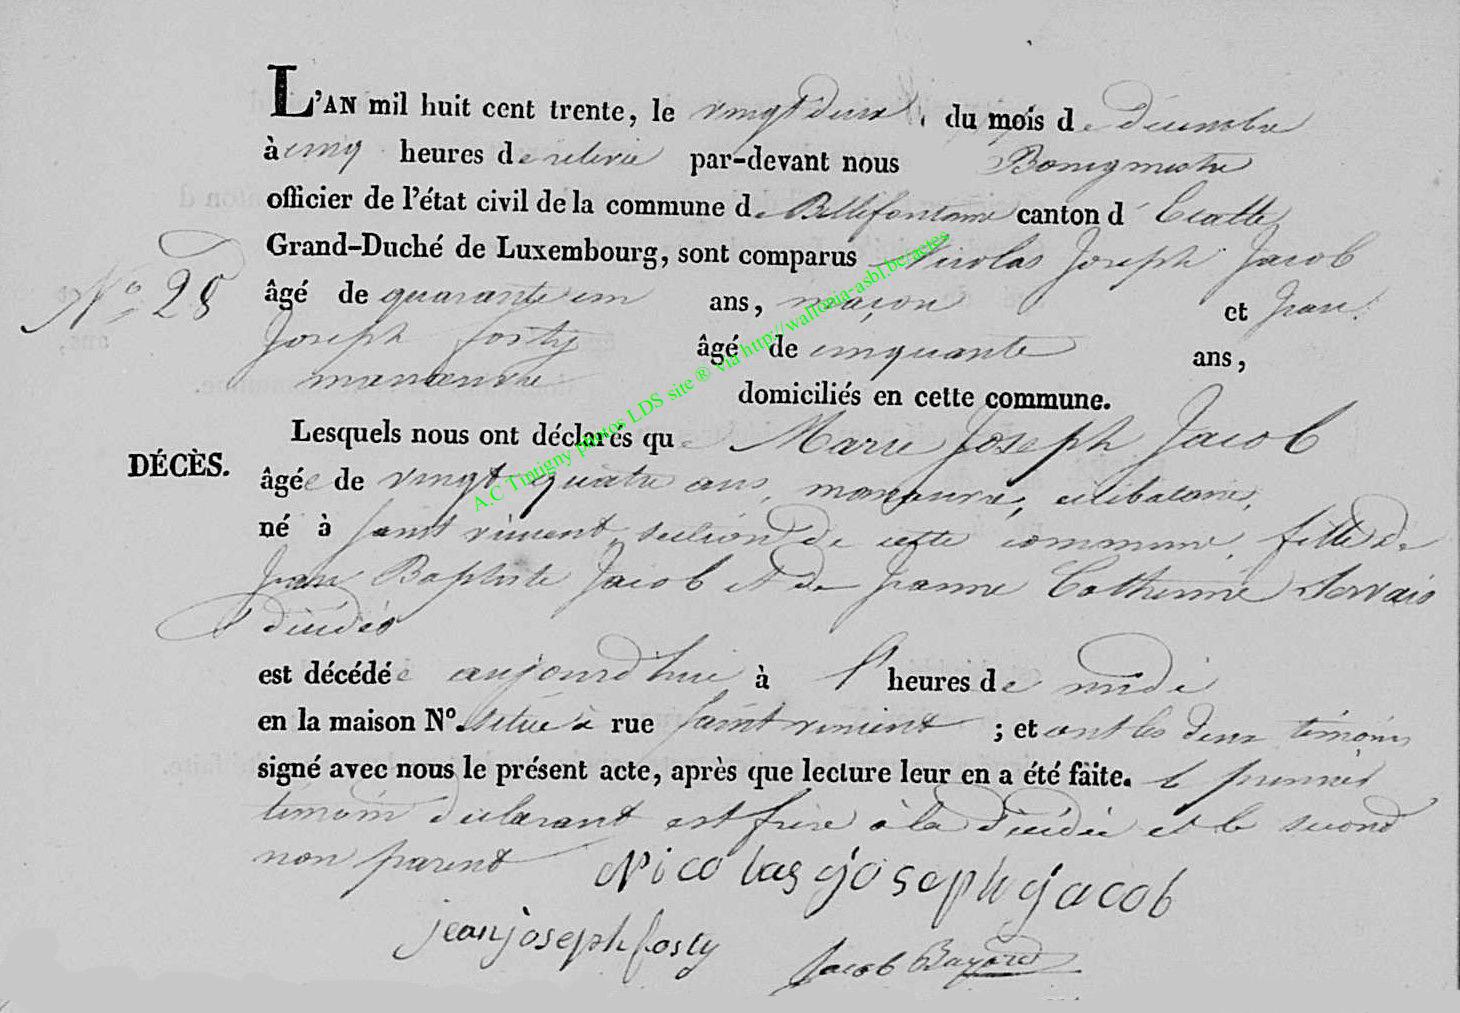 L'AN mil huit cent trente, le vingt deux, du mois de décembre
à cinq heures de relevée par-devant nous Bourgmestre
officier de l'état civil de la commune de Bellefontaine canton d' Etalle
Grand-Duché de Luxembourg, sont comparus Nicolas Joseph Jacob
N° 28
âgé de quarante un ans, maçon et Jean
Joseph fosty âgé de cinquante ans,
manœuvre domiciliés en cette commune.
Lesquels nous ont déclarés que Marie Joseph Jacob
DÉCÈS.
âgée de vingt quatre ans, manœuvre, célibataire,
né à saint vincent, section de cette commune, fille de
Jean Baptiste Jacob et de Jeanne Catherine Servais
décédés
est décédée aujourd'hui à heures de midi
en la maison N°. située à rue saint vincent ; et ont les deux témoins
signé avec nous le présent acte, après que lecture leur en a été faite. le premier
témoin déclarant est frère à la décédée et le second
non parent Nicolas joseph jacob
jean joseph fosty Jacob Bayard
A.C Tintigny photos LDS site ® via http://wallonia-asbl.be/actes